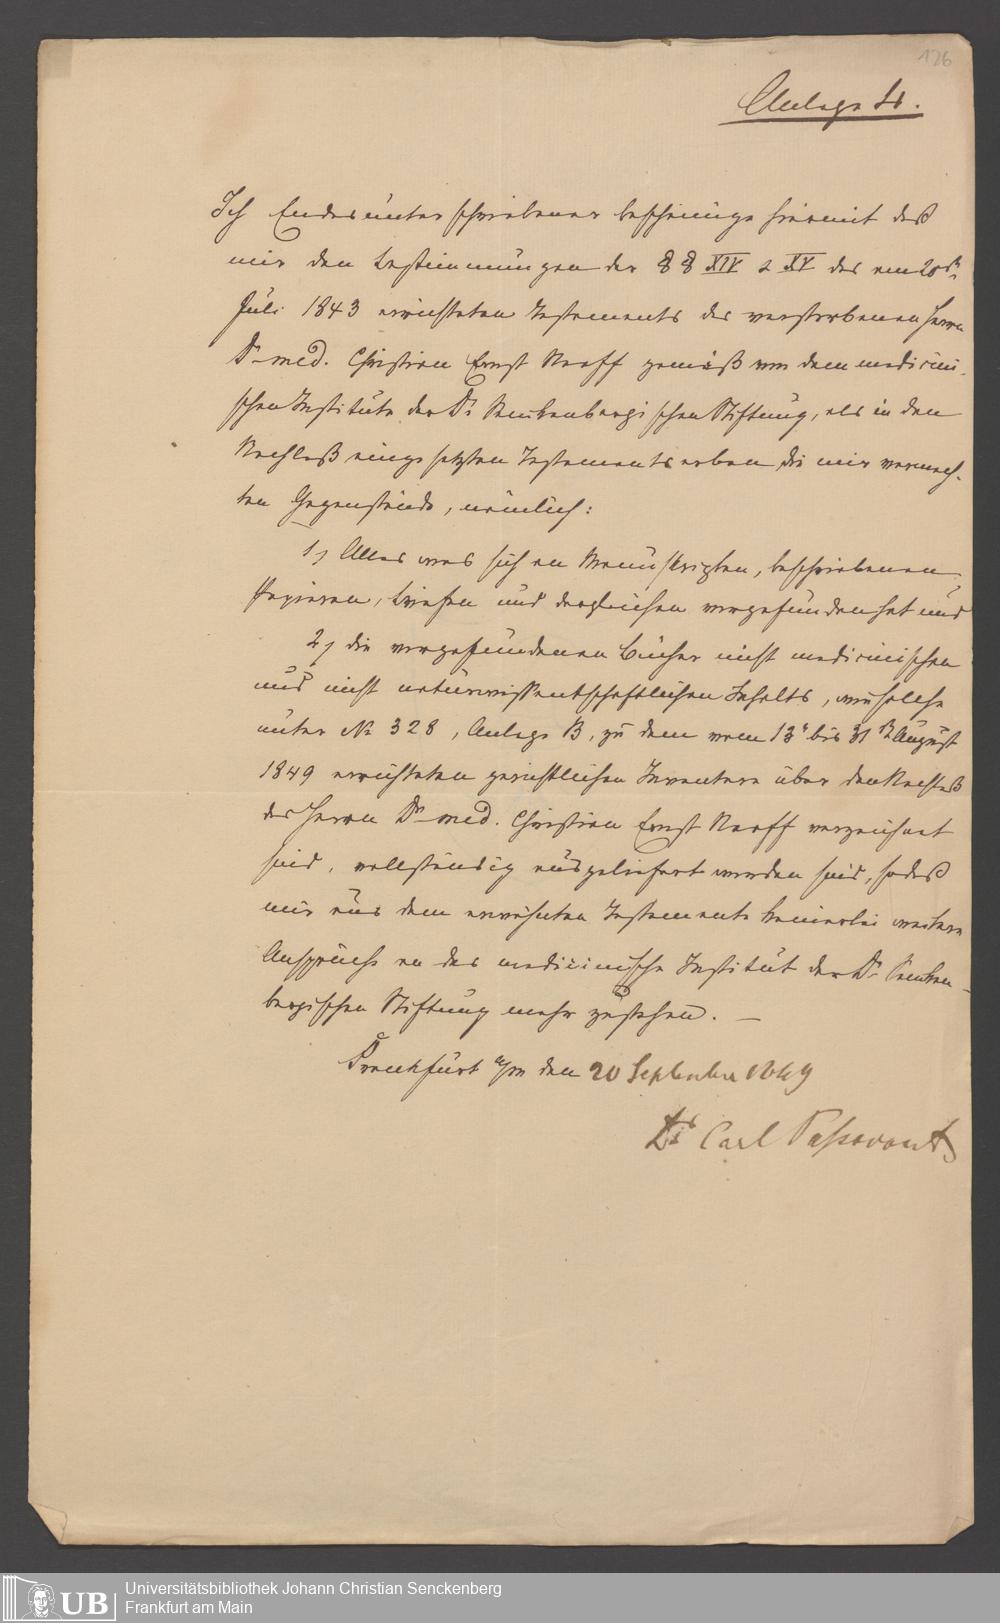 126
Anlage
Ich Endesunterschriebener bescheinige hiermit daß
mir den Bestimmungen der §§ XIV & XV des am 20ten
Juli 1843 errichteten Testaments des verstorbenen Herrn
Dr med. Christian Ernst Neeff gemäß von dem medicini-
schen Institute der Dr Senckenbergischen Stiftung, als in den
Nachlaß eingesetzten Testamentserben die mir vermach-
ten Gegenstände, nämlich:
1, Alles was sich an Manuskripten, beschriebenen
Papieren, Briefen und dergleichen vorgefunden hat und
2, die vorgefundenen Bücher nicht medicinischen
und nicht naturwissentschaftlichen Inhalts, wie solche
unter No 328, Anlage B, zu dem vom 13t bis 31t August
1849 errichteten gerichtlichen Inventare über den Nachlaß
des Herrn Dr med. Christian Ernst Neeff verzeichnet
sind, vollständig ausgeliefert worden sind, sodaß
mir aus dem erwähnten Testamente keinerlei weitere
Ansprüche an das medicinische Institut der Dr Sencken-
bergischen Stiftung mehr zustehen. —
Frankfurt a/m den 20 September 1849
Dr Carl Passavant
UB
Universitätsbibliothek Johann Christian Senckenberg
Frankfurt am Main